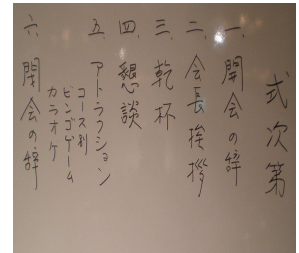 式次第
一、開会の辞
二、会長挨拶
三、乾杯
四、懇談
五、アトラクション
コース別
ビンゴゲーム
カラオケ
六、閉会の辞